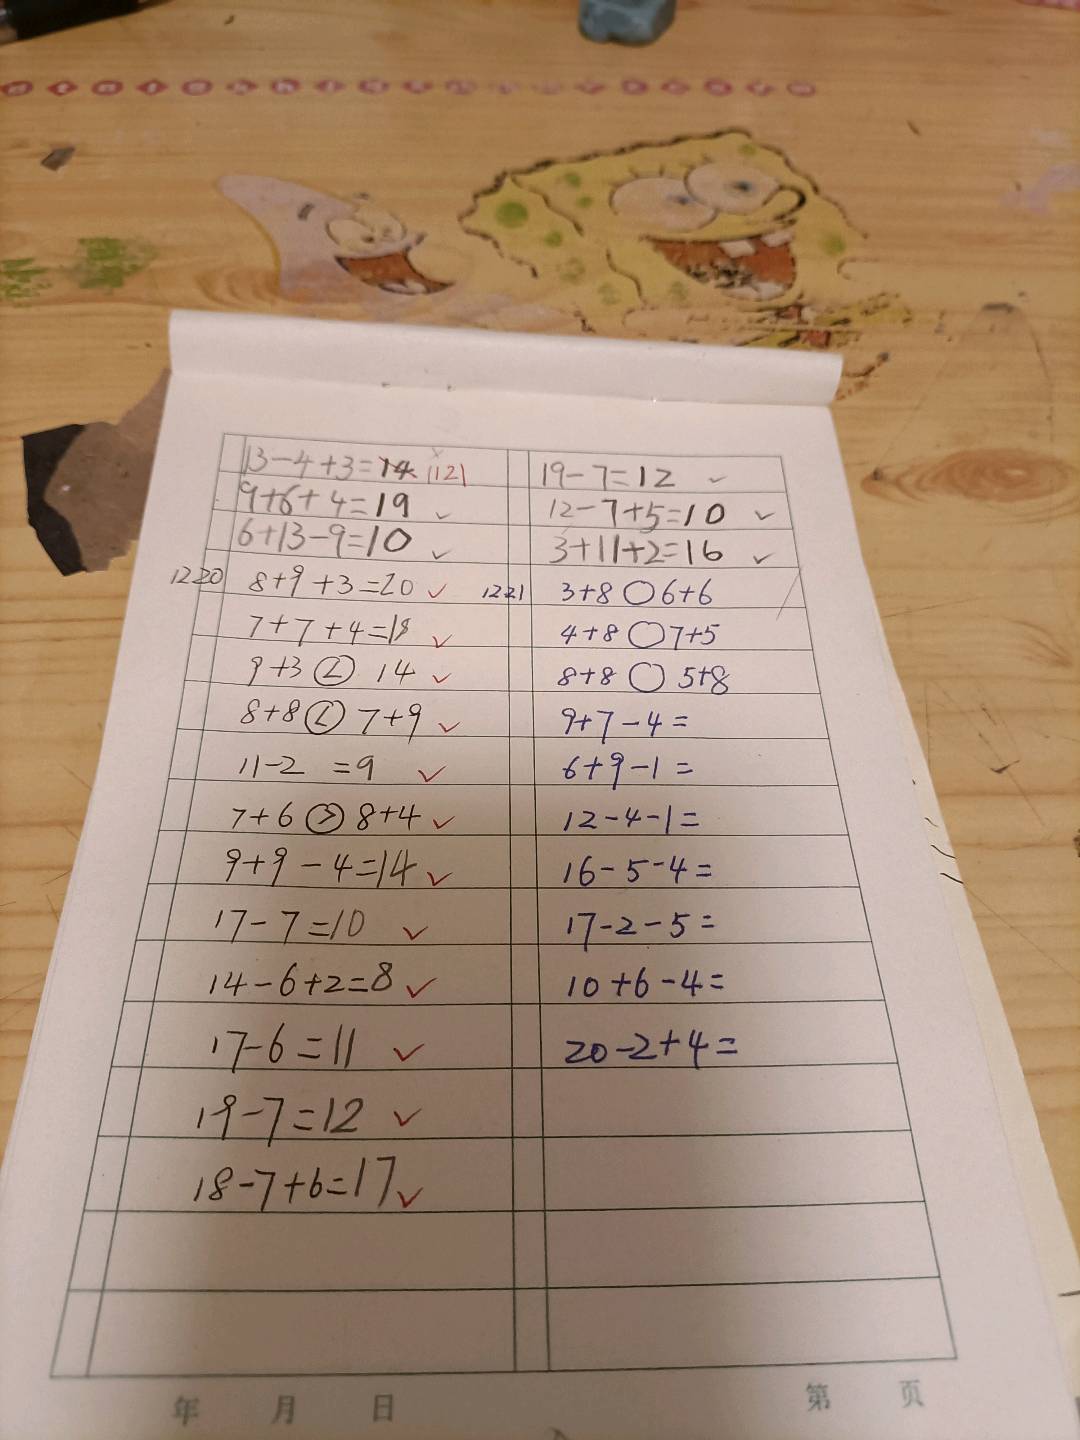 13-4+3=14 12
9+6+4=19 ✓
6+13-9=10 ✓
1220 8+9+3=20 ✓
7+7+4=18 ✓
9+3<14 ✓
8+8<7+9 ✓
11-2=9 ✓
7+6>8+4 ✓
9+9-4=14 ✓
17-7=10 ✓
14-6+2=8 ✓
17-6=11 ✓
19-7=12 ✓
18-7+6=17 ✓
19-7=12 ✓
12-7+5=10 ✓
3+11+2=16 ✓
1221 3+8○6+6
4+8○7+5
8+8○5+8
9+7-4=
6+9-1=
12-4-1=
16-5-4=
17-2-5=
10+6-4=
20-2+4=
年 月 日
第 页